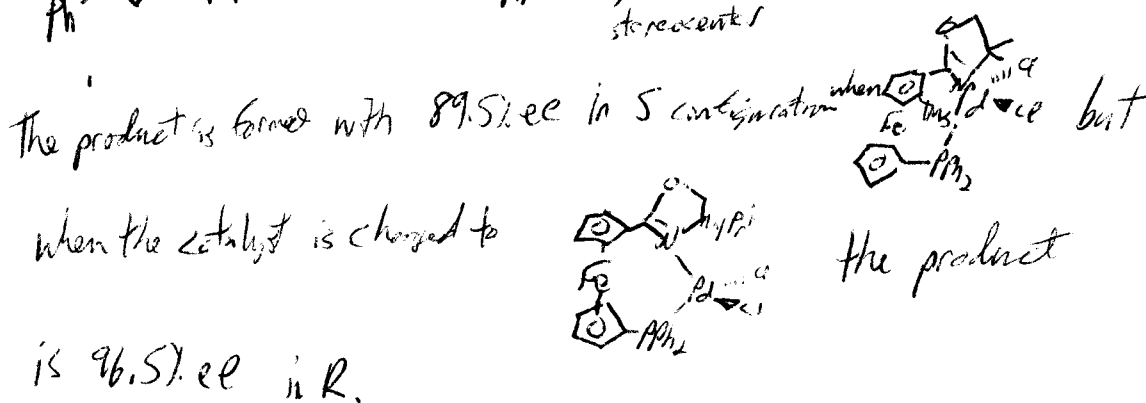 Ph
stereocenter
The product is formed with 89.5% ee in S configuration when
Fe
TMS
Pd
Cl
PPh2
but
when the catalyst is changed to
O
N
iPr
Fe
Pd
Cl
Cl
PPh2
the product
is 96.5% ee in R.